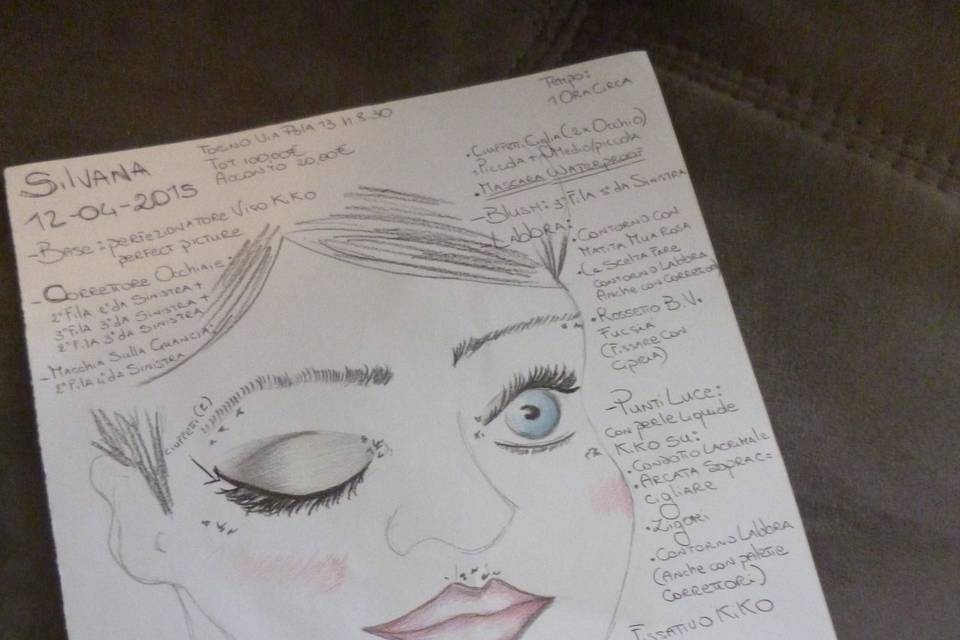 Silvana
12-04-2015
Torino Via Pola 13 h 8.30
Tot 100,00€
Acconto 20,00€
- Base: perfezionatore Viso Kiko
perfect picture
- Correttore Occhiaie:
2°Fila 2°da Sinistra +
3°Fila 3°da Sinistra +
2°Fila 3°da Sinistra
- Macchia Sulla Guancia:
2°Fila 4°da Sinistra
ciuffetti (2)
Tempo:
1 Ora Circa
• Ciuffetti Ciglia (2 x Occhio)
Piccola + Medio/piccola
• Mascara Waterproof
- Blush: 3°Fila 1°da Sinistra
- Labbra:
• Contorno con
Matita Mua Rosa
Contorno Labbra
Anche con Correttore
• Rossetto B.V.
Fucsia
(Fissare con
cipria)
- Punti Luce:
con perle liquide
Kiko su:
• Condotto Lacrimale
• Arcata Soprac=
cigliare
• Zigomi
• Contorno Labbra
(Anche con palette
correttori)
Fissativo Kiko